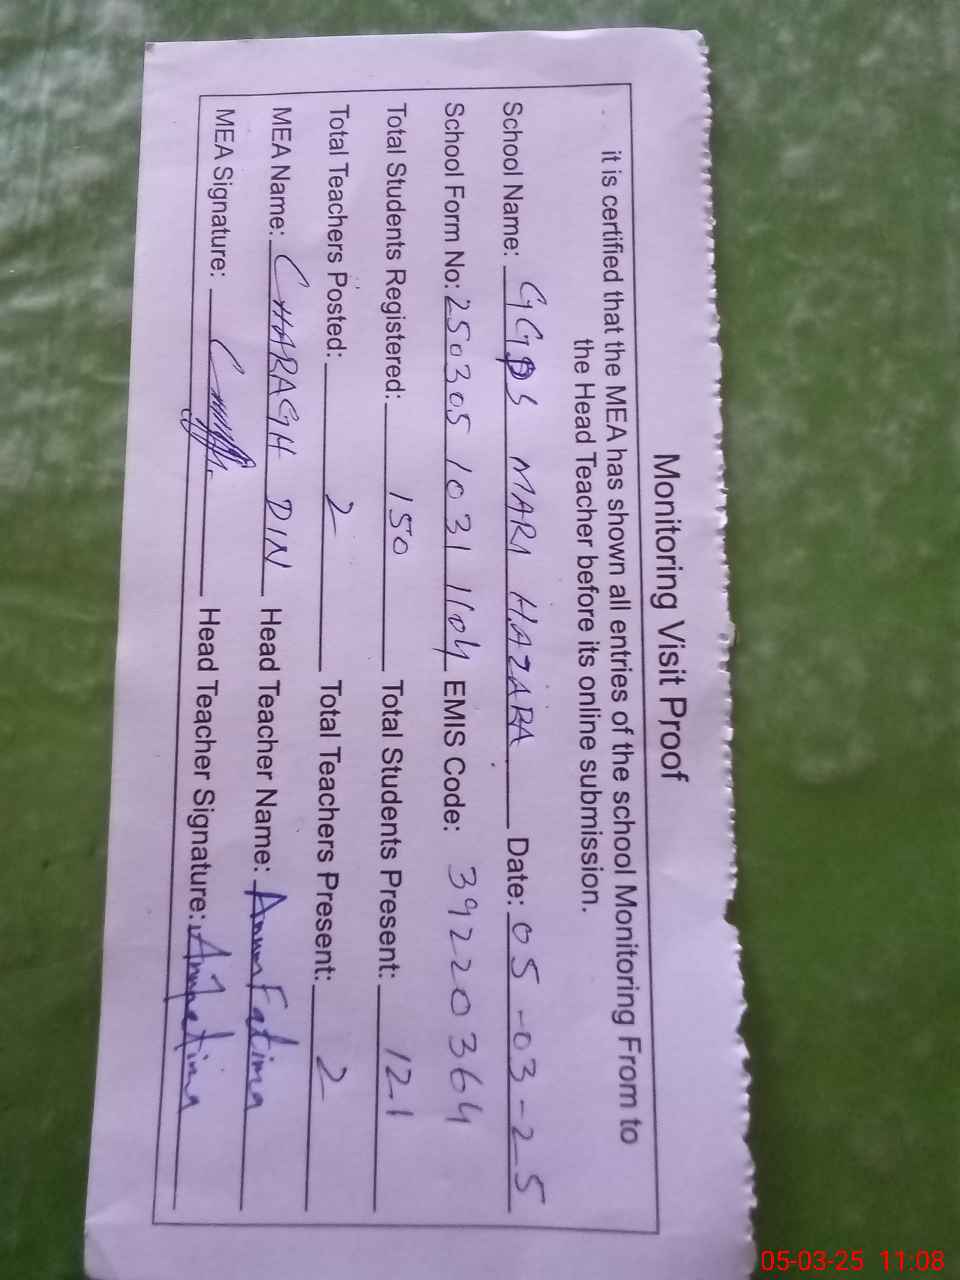 Monitoring Visit Proof
it is certified that the MEA has shown all entries of the school Monitoring From to
the Head Teacher before its online submission.
School Name: GGPS MARI HAZARA Date: 05-03-25
School Form No: 250305 1031 1104 EMIS Code: 39220364
Total Students Registered: 150 Total Students Present: 121
Total Teachers Posted: 2 Total Teachers Present: 2
MEA Name: CHARAGH DIN Head Teacher Name: Anum Fatima
MEA Signature: Head Teacher Signature:
05-03-25 11:08